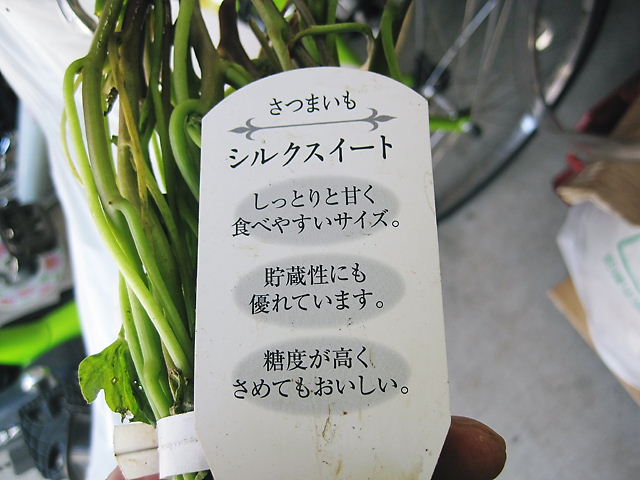 さつまいも
シルクスイート
しっとりと甘く
食べやすいサイズ。
貯蔵性にも
優れています。
糖度が高く
さめてもおいしい。